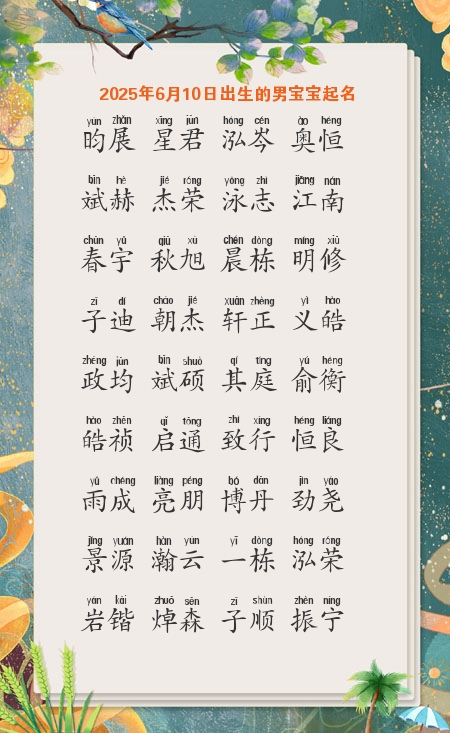 2025年6月10日出生的男宝宝起名
yún zhǎn xīng jūn hóng cén ào héng
昀展 星君 泓岑 奥恒
bīn hè jié róng yǒng zhì jiāng nán
斌赫 杰荣 泳志 江南
chūn yǔ qiū xù chén dòng míng xiū
春宇 秋旭 晨栋 明修
zǐ dí cháo jié xuān zhèng yì hào
子迪 朝杰 轩正 义皓
zhèng jūn bīn shuò qí tíng yú héng
政均 斌硕 其庭 俞衡
hào zhēn qǐ tōng zhì xíng héng liáng
皓祯 启通 致行 恒良
yǔ chéng liàng péng bó dān jìn yáo
雨成 亮朋 博丹 劲尧
jǐng yuán hàn yún yī dòng hóng róng
景源 瀚云 一栋 泓荣
yán kǎi zhuō sēn zǐ shùn zhèn níng
岩锴 焯森 子顺 振宁